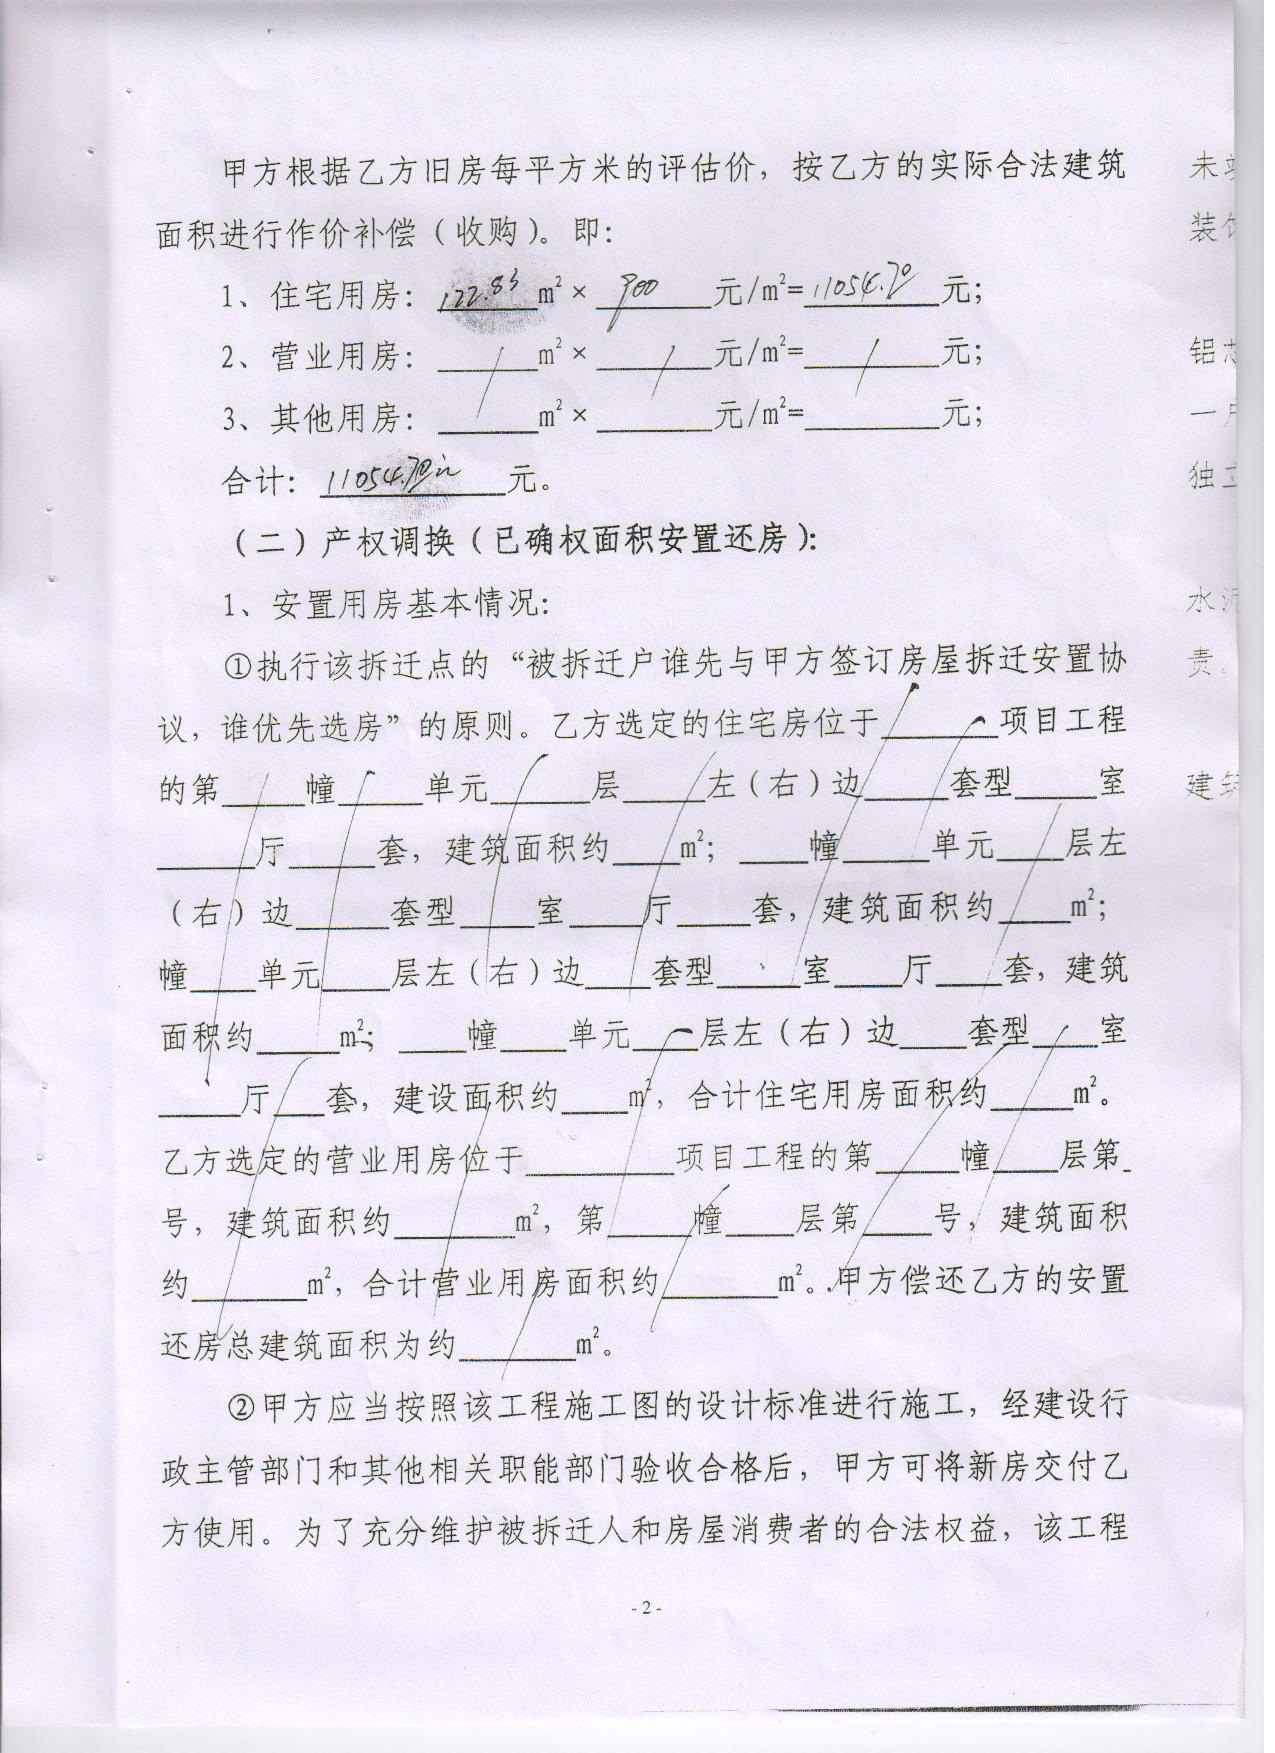 甲方根据乙方旧房每平方米的评估价，按乙方的实际合法建筑
面积进行作价补偿（收购）。即：
1、住宅用房：122.83m²×900元/m²=11054.70元；
2、营业用房：/m²×/元/m²=/元；
3、其他用房：____m²×____元/m²=____元；
合计：11054.70元。
（二）产权调换（已确权面积安置还房）：
1、安置用房基本情况：
①执行该拆迁点的“被拆迁户谁先与甲方签订房屋拆迁安置协
议，谁优先选房”的原则。乙方选定的住宅房位于____项目工程
的第____幢____单元____层____左（右）边____套型____室
____厅____套，建筑面积约____m²；____幢____单元____层左
（右）边____套型____室____厅____套，建筑面积约____m²；
幢____单元____层左（右）边____套型____室____厅____套，建筑
面积约____m²；____幢____单元____层左（右）边____套型____室
____厅____套，建设面积约____m²，合计住宅用房面积约____m²。
乙方选定的营业用房位于____项目工程的第____幢____层第_
号，建筑面积约____m²，第____幢____层第____号，建筑面积
约____m²，合计营业用房面积约____m²。甲方偿还乙方的安置
还房总建筑面积为约____m²。
②甲方应当按照该工程施工图的设计标准进行施工，经建设行
政主管部门和其他相关职能部门验收合格后，甲方可将新房交付乙
方使用。为了充分维护被拆迁人和房屋消费者的合法权益，该工程
- 2 -
未
装
铝
一
独
水
责。
建